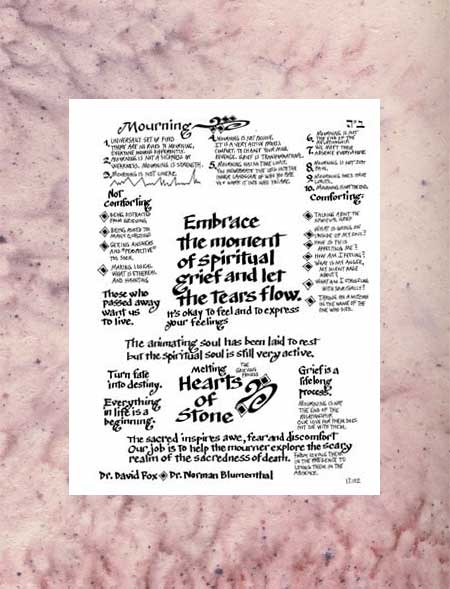 Mourning
ב״ה
1. UNIVERSAL SET OF RULES
THERE ARE NO RULES TO MOURNING,
EVERYONE MOURNS DIFFERENTLY.
2. MOURNING IS NOT A SICKNESS OR
WEAKNESS. MOURNING IS STRENGTH.
3. MOURNING IS NOT LINEAR.
4. MOURNING IS NOT PASSIVE.
IT IS A VERY ACTIVE
COMFORT. TO CHANGE YOUR
GRIEF IS TRANSFORMATIONAL.
5. MOURNING HAS NO TIME LIMIT.
YOU INCORPORATE THE LOSS INTO THE
INNER LANDSCAPE OF WHO YOU ARE
6. MOURNING IS NOT
THE END OF THE
RELATIONSHIP
7. YOU MEET THEIR
ABSENCE EVERYWHERE
8. MOURNING IS NOT JUST
9. MOURNING DOES HAVE
10. MOURNING IS NOT
Not
comforting
BEING DISTRACTED
FROM GRIEVING
BEING ASKED TOO
MANY QUESTIONS
GETTING ANSWERS
AND "PERSPECTIVE"
TOO SOON.
MAKING LOGICAL
WHAT IS ETHEREAL
AND HAUNTING
Those who
passed away
want us
to live.
Embrace
the moment
of spiritual
grief and let
the tears flow.
It's okay to feel and to express
your feelings
Comforting:
TALKING ABOUT THE
WHAT IS GOING ON
INSIDE OF MY SOUL?
HOW IS THIS
AFFECTING ME?
HOW AM I FEELING?
WHAT IS MY ANGER,
MY SILENT RAGE
ABOUT?
WHAT AM I STRUGGLING
WITH SPIRITUALLY?
TAKING ON A MITZVAH
IN THE NAME OF THE
ONE WHO DIED.
The animating soul has been laid to rest
but the spiritual soul is still very active.
Turn fate
into destiny.
Everything
in life is a
beginning.
Melting
THE
GRIEVING
PROCESS
Hearts
of
Stone
Grief is a
lifelong
process.
MOURNING IS NOT
THE END OF THE
RELATIONSHIP.
OUR LOVE FOR THEM DOES
NOT DIE WITH THEM.
The sacred inspires awe, fear and discomfort
Our job is to help the mourner explore the scary
realm of the sacredness of death.
FROM LOVING THEM
IN THE PRESENCE TO
LOVING THEM IN THE
ABSENCE.
Dr. David Fox Dr. Norman Blumenthal